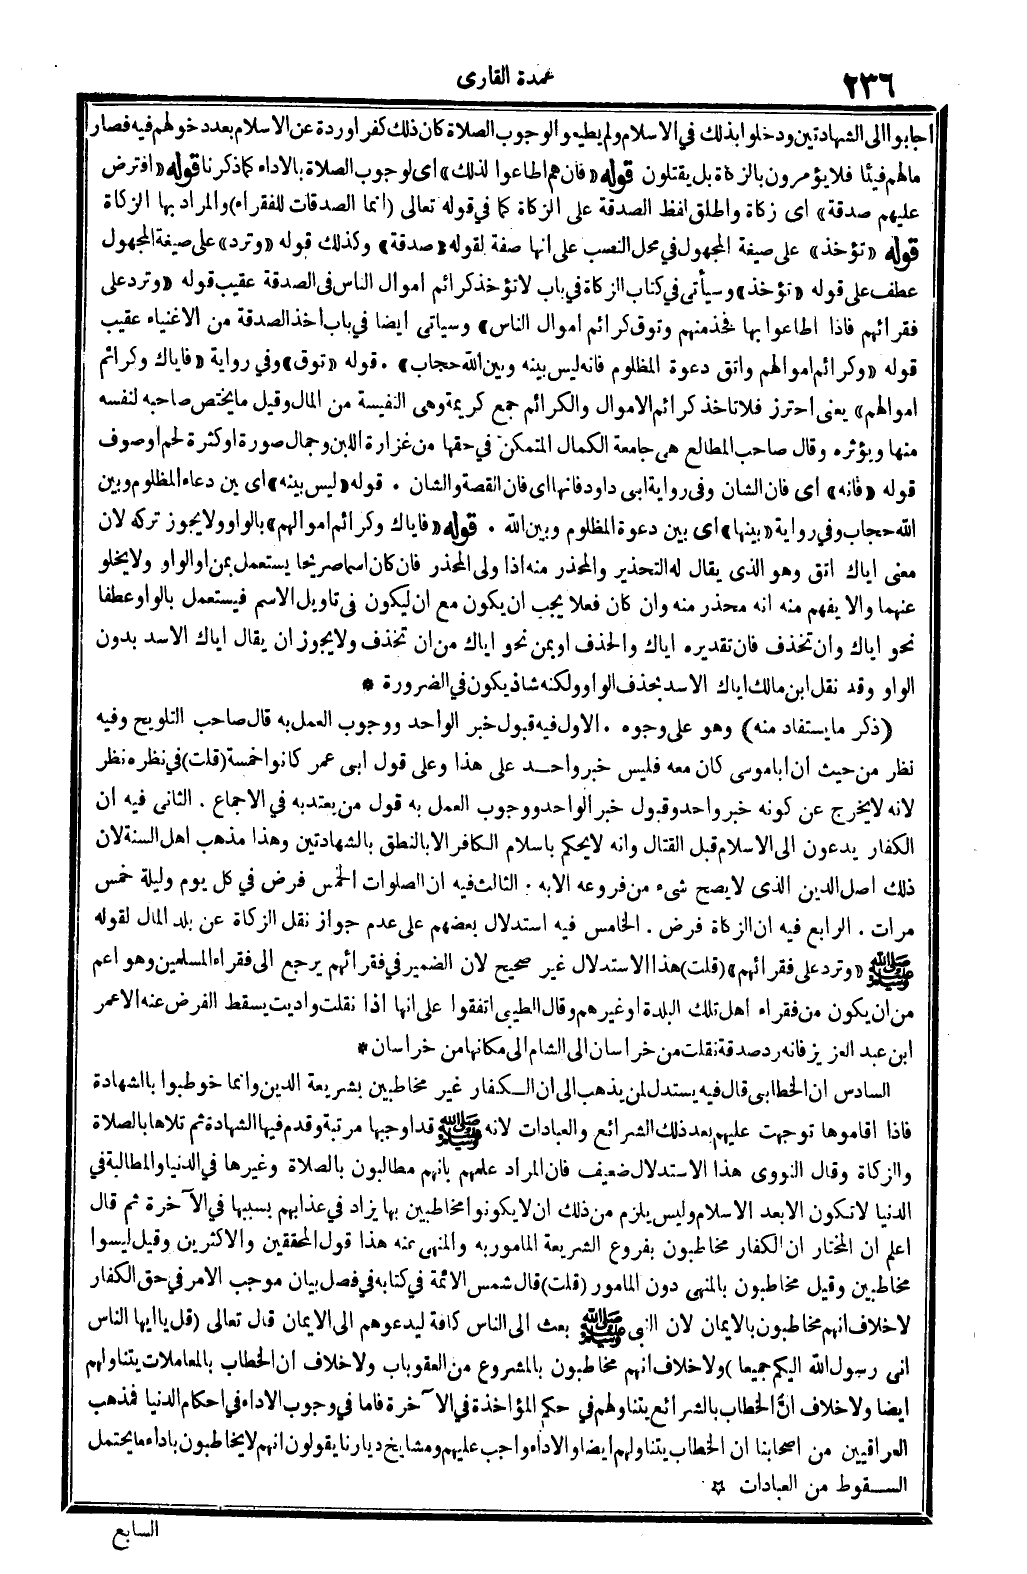 ٢٣٦
عمدة القارى
اجابوا الى الشهادتين ودخلوا بذلك في الاسلام ولم يطيعوا لوجوب الصلاة كان ذلك كفرا وردة عن الاسلام بعد دخولهم فيه فصار
مالهم فيئا فلا يؤمرون بالزكاة بل يقتلون قوله «فان هم اطاعوا لذلك» اى لوجوب الصلاة بالاداء كما ذكرنا قوله «افترض
عليهم صدقة» اى زكاة واطلق لفظ الصدقة على الزكاة كما في قوله تعالى (انما الصدقات للفقراء) والمراد بها الزكاة
قوله «تؤخذ» على صيغة المجهول في محل النصب على انها صفة لقوله «صدقة» وكذلك قوله «وترد» على صيغة المجهول
عطف على قوله «تؤخذ» وسيأتى في كتاب الزكاة في باب لا تؤخذ كرائم اموال الناس فى الصدقة عقيب قوله «وترد على
فقرائهم فاذا اطاعوا بها فخذ منهم وتوق كرائم اموال الناس» وسياتى ايضا في باب اخذ الصدقة من الاغنياء عقيب
قوله «وكرائم اموالهم واتق دعوة المظلوم فانه ليس بينه وبين الله حجاب» . قوله «توق» وفي رواية «فاياك وكرائم
اموالهم» يعنى احترز فلا تاخذ كرائم الاموال والكرائم جمع كريمة وهى النفيسة من المال وقيل ما يختص صاحبه لنفسه
منها ويؤثره وقال صاحب المطالع هى جامعة الكمال المتمكن في حقها من غزارة اللبن وجمال صورة او كثرة لحم او صوف
قوله «فانه» اى فان الشان وفى رواية ابى داود فانها اى فان القصة والشان . قوله «ليس بينه» اى بين دعاء المظلوم وبين
الله حجاب وفي رواية «بينها» اى بين دعوة المظلوم وبين الله . قوله «فاياك وكرائم اموالهم» بالواو ولا يجوز تركه لان
معنى اياك اتق وهو الذى يقال له التحذير والمحذر منه اذا ولى المحذر فان كان اسما صريحا يستعمل بمن او الواو ولا يخلو
عنهما والا يفهم منه انه محذر منه وان كان فعلا يجب ان يكون مع ان ليكون فى تاويل الاسم فيستعمل بالواو عطفا
نحو اياك وان تحذف فان تقديره اياك والحذف او بمن نحو اياك من ان تحذف ولا يجوز ان يقال اياك الاسد بدون
الواو وقد نقل ابن مالك اياك الاسد بحذف الواو ولكنه شاذ يكون في الضرورة *
(ذكر ما يستفاد منه) وهو على وجوه . الاول فيه قبول خبر الواحد ووجوب العمل به قال صاحب التلويح وفيه
نظر من حيث ان ابا موسى كان معه فليس خبر واحد على هذا وعلى قول ابى عمر كانوا خمسة (قلت) في نظره نظر
لانه لا يخرج عن كونه خبر واحد وقبول خبر الواحد ووجوب العمل به قول من يعتد به في الاجماع . الثانى فيه ان
الكفار يدعون الى الاسلام قبل القتال وانه لا يحكم باسلام الكافر الا بالنطق بالشهادتين وهذا مذهب اهل السنة لان
ذلك اصل الدين الذى لا يصح شىء من فروعه الا به . الثالث فيه ان الصلوات الخمس فرض في كل يوم وليلة خمس
مرات . الرابع فيه ان الزكاة فرض . الخامس فيه استدلال بعضهم على عدم جواز نقل الزكاة عن بلد المال لقوله
ﷺ «وترد على فقرائهم» (قلت) هذا الاستدلال غير صحيح لان الضمير في فقرائهم يرجع الى فقراء المسلمين وهو اعم
من ان يكون من فقراء اهل تلك البلدة او غيرهم وقال الطيبى اتفقوا على انها اذا نقلت واديت يسقط الفرض عنه الا عمر
ابن عبد العزيز فانه رد صدقة نقلت من خراسان الى الشام الى مكانها من خراسان *
السادس ان الخطابى قال فيه يستدل لمن يذهب الى ان الكفار غير مخاطبين بشريعة الدين وانما خوطبوا بالشهادة
فاذا اقاموها توجهت عليهم بعد ذلك الشرائع والعبادات لانه ﷺ قد اوجبها مرتبة وقدم فيها الشهادة ثم تلاها بالصلاة
والزكاة وقال النووى هذا الاستدلال ضعيف فان المراد علمهم بانهم مطالبون بالصلاة وغيرها في الدنيا والمطالبة في
الدنيا لا تكون الا بعد الاسلام وليس يلزم من ذلك ان لا يكونوا مخاطبين بها يزاد في عذابهم بسببها في الآخرة ثم قال
اعلم ان المختار ان الكفار مخاطبون بفروع الشريعة المامور به والمنهى عنه هذا قول المحققين والاكثرين وقيل ليسوا
مخاطبين وقيل مخاطبون بالمنهى دون المامور (قلت) قال شمس الائمة في كتابه في فصل بيان موجب الامر في حق الكفار
لا خلاف انهم مخاطبون بالايمان لان النبى ﷺ بعث الى الناس كافة ليدعوهم الى الايمان قال تعالى (قل يا ايها الناس
انى رسول الله اليكم جميعا) ولا خلاف انهم مخاطبون بالمشروع من العقوبات ولا خلاف ان الخطاب بالمعاملات يتناولهم
ايضا ولا خلاف ان الخطاب بالشرائع يتناولهم في حكم المؤاخذة في الآخرة فاما في وجوب الاداء في احكام الدنيا فمذهب
العراقيين من اصحابنا ان الخطاب يتناولهم ايضا والاداء واجب عليهم ومشايخ ديارنا يقولون انهم لا يخاطبون باداء ما يحتمل
السقوط من العبادات *
السابع